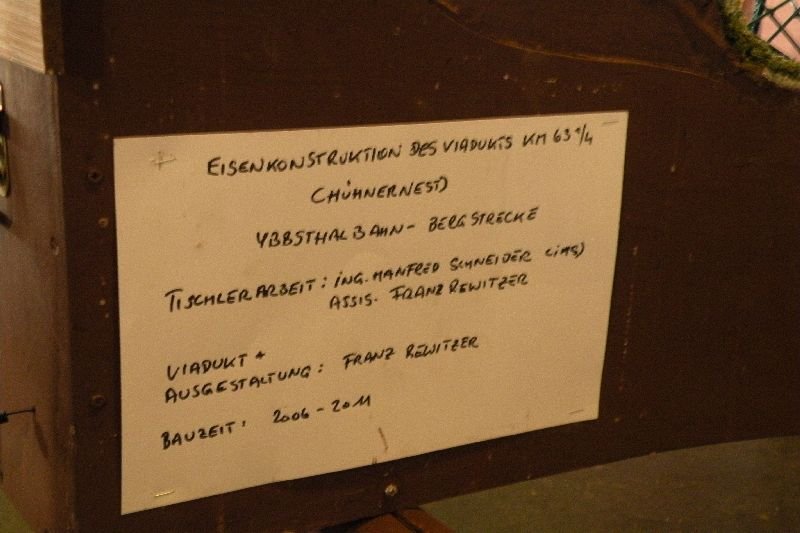 EISENKONSTRUKTION DES VIADUKTS KM 63 1/4
(HÜHNERNEST)
YBBSTHALBAHN - BERGSTRECKE
TISCHLERARBEIT: ING. MANFRED SCHNEIDER (IMS)
ASSIS. FRANZ REWITZER
VIADUKT +
AUSGESTALTUNG: FRANZ REWITZER
BAUZEIT: 2006 - 2011